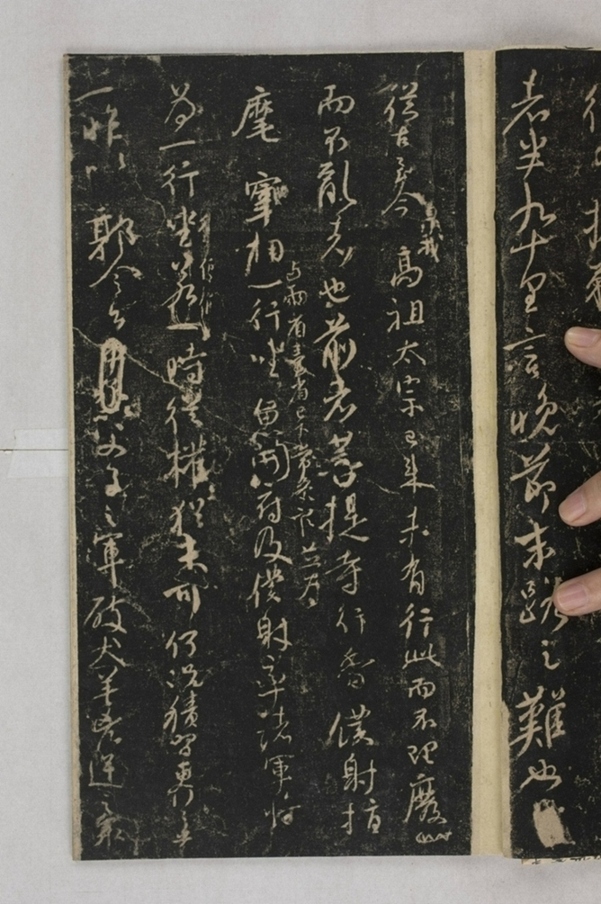 者半九十里言晚節末路之難也
從古至今泉我高祖太宗已来未有行此而不理廢
而不亂者也前者菩提寺行香僕射指
麾宰相与兩省臺省已下常參官並為一行坐魚開府及僕射率諸軍將
為一行坐若一時從權猶未可何況積習更行之
一昨以郭令公以父子之軍破犬羊凶逆之衆